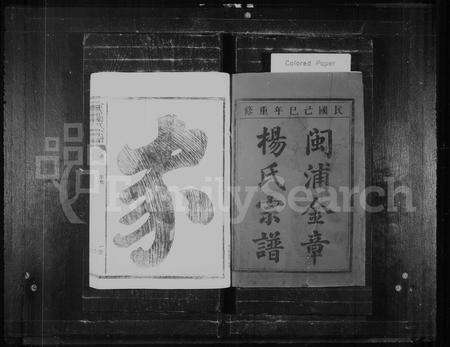 Colored Paper
民國己巳年重修
閩浦金章
楊氏宗譜
家
FamilySearch